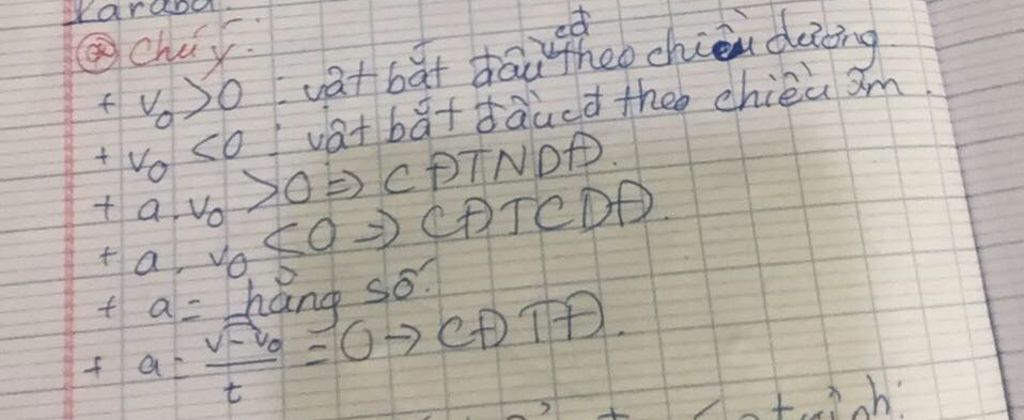 * Chú ý:
+ v₀ > 0 : vật bắt đầu cđ theo chiều dương.
+ v₀ < 0 : vật bắt đầu cđ theo chiều âm.
+ a. v₀ > 0 => CĐTNDĐ.
+ a. v₀ < 0 => CĐTCDĐ.
+ a = hằng số.
+ a = \frac{v - v₀}{t} = 0 → CĐTĐ.